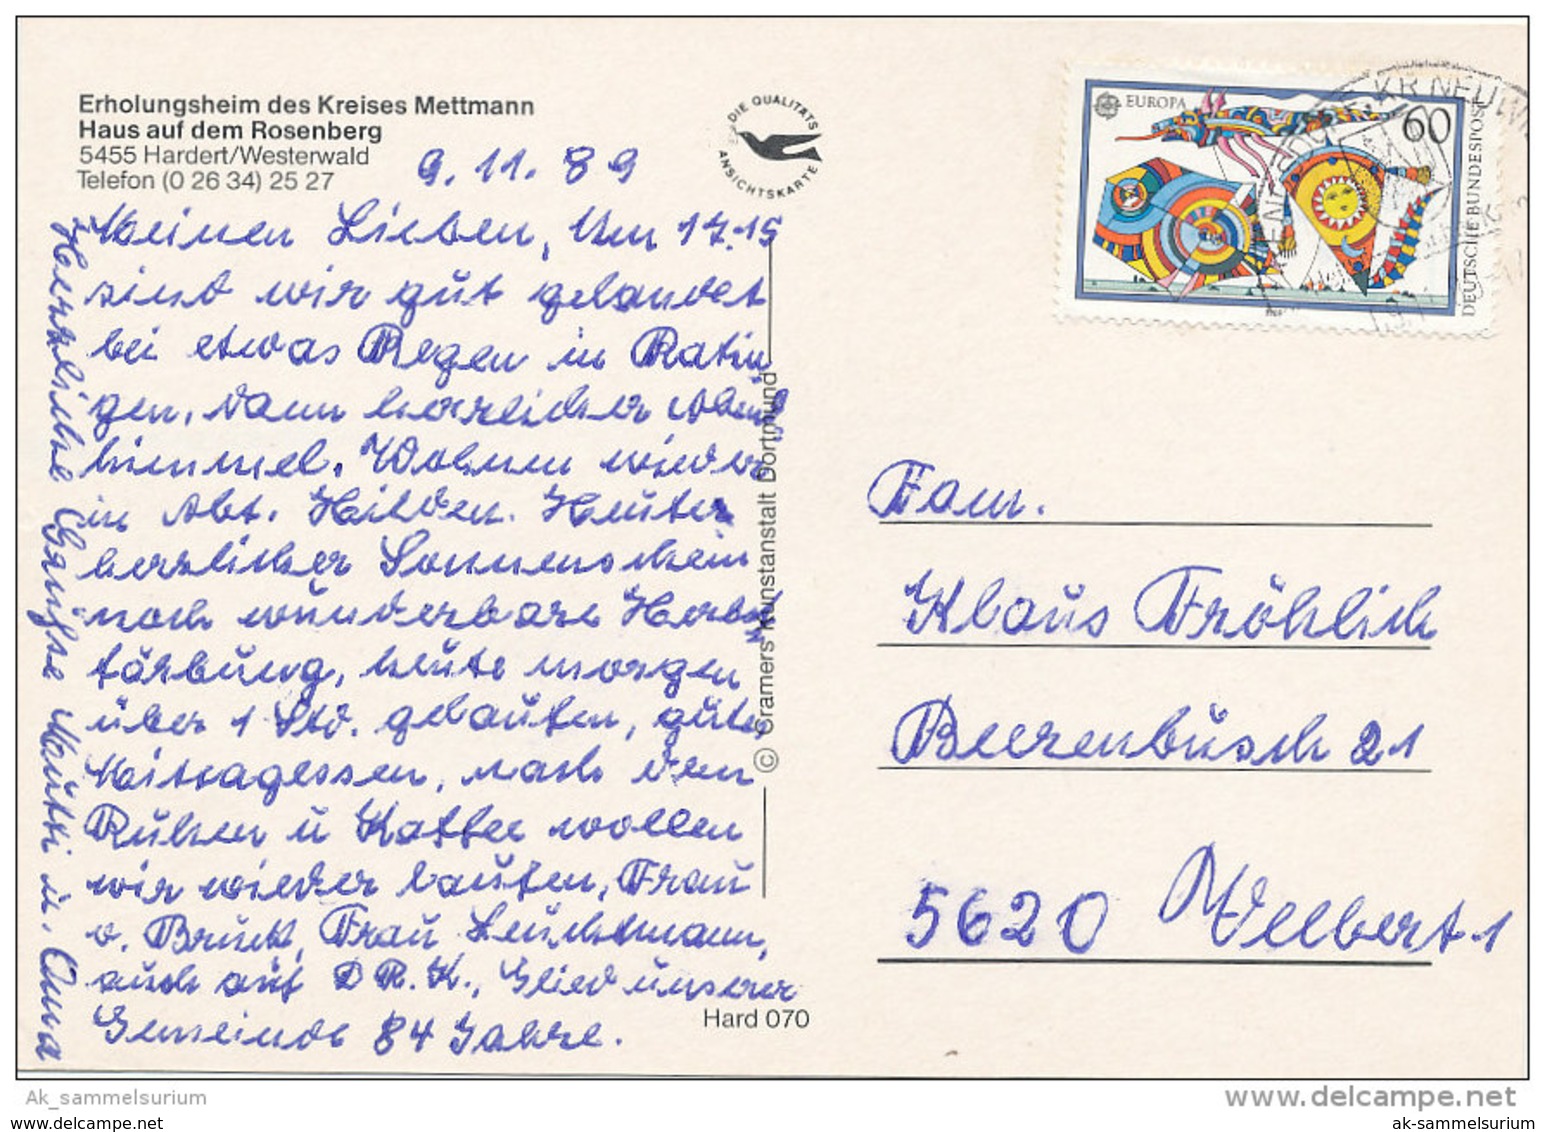 Erholungsheim des Kreises Mettmann
Haus auf dem Rosenberg
5455 Hardert/Westerwald
Telefon (0 26 34) 25 27
9.11.89
DIE QUALITÄTS
ANSICHTSKARTE
EUROPA
60
DEUTSCHE BUNDESPOST
Meinen Lieben, Um 17.15
sind wir gut gelandet
bei etwas Regen in Ratin
gen, dann herrlicher Abend
himmel. Wohnen wieder
in Abt. Hilden. Heute
herzlicher Sonnenschein
noch wunderbare Herbst
färbung, heute morgen
über 1 Std. gelaufen, gutes
Mittagessen, nach dem
Ruhen u Kaffee wollen
wir wieder laufen, Frau
v. Bruck, Frau Leuchtmann,
auch auf D.R.K., Glied unserer
Gemeinde 84 Jahre.
Herzliche Grüsse Mutti u. Oma
© Cramers Kunstanstalt Dortmund
Hard 070
Fam.
Klaus Fröhlich
Beerenbusch 21
5620 Velbert 1
Ak_sammelsurium
www.delcampe.net
www.ak-sammelsurium.com
ak-sammelsurium